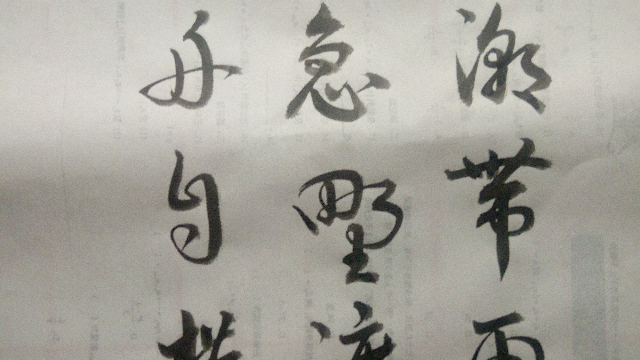 潮带雨
急野渡
舟自横